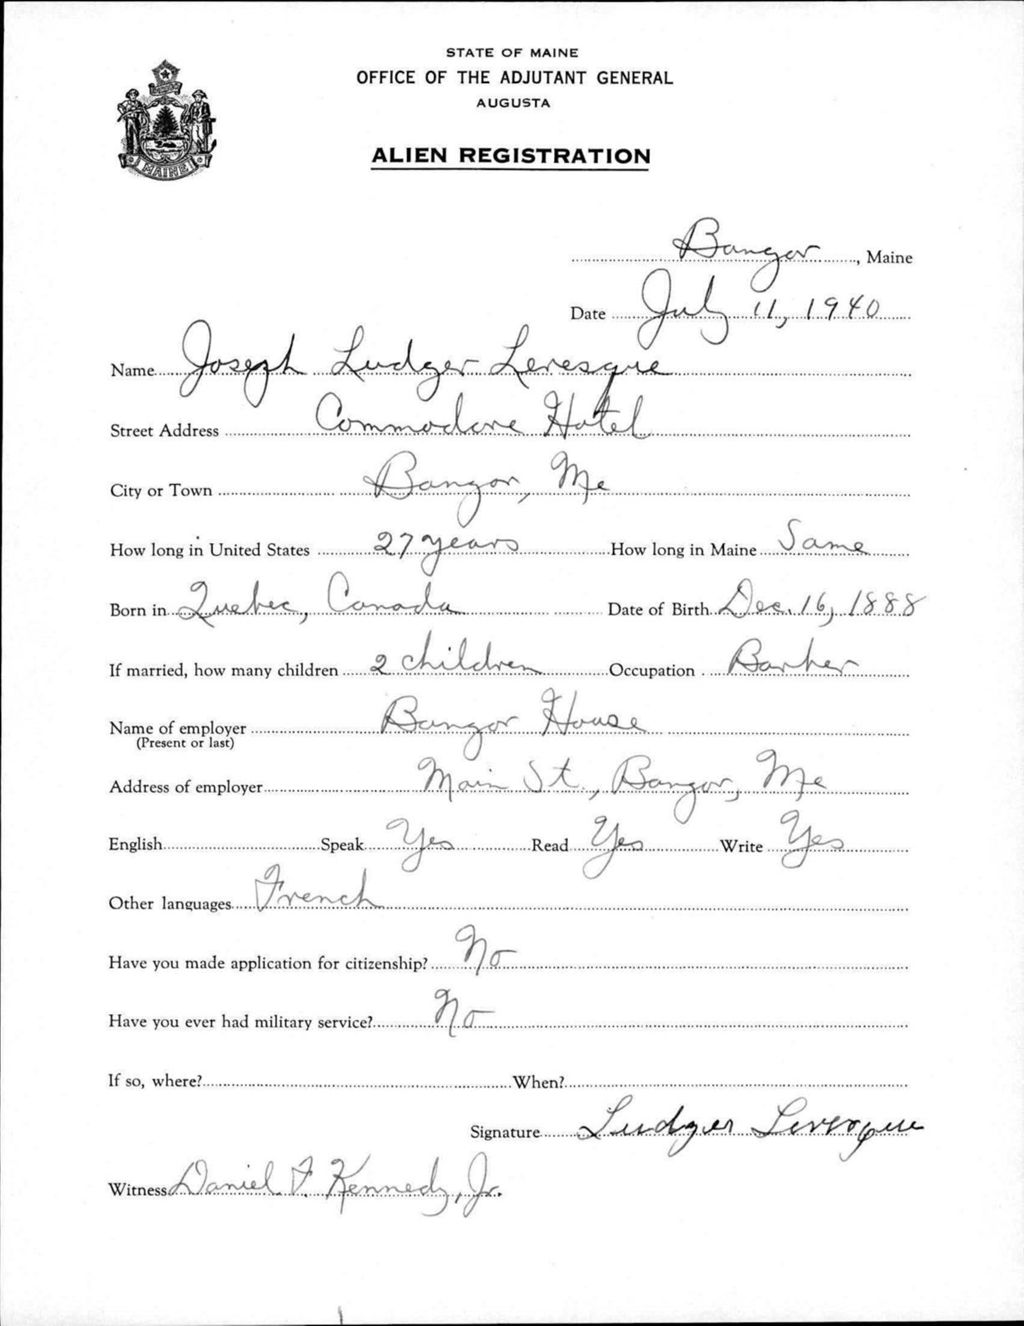 STATE OF MAINE
OFFICE OF THE ADJUTANT GENERAL
AUGUSTA
ALIEN REGISTRATION
MAINE
Bangor, Maine
Date July 11, 1940
Name Joseph Ludger Levesque
Street Address Commodore Hotel
City or Town Bangor, Me
How long in United States 27 years How long in Maine Same
Born in Quebec, Canada Date of Birth Dec. 16, 1888
If married, how many children 2 children Occupation Barber
Name of employer Bangor House
(Present or last)
Address of employer Main St., Bangor, Me
English Speak Yes Read Yes Write Yes
Other languages French
Have you made application for citizenship? No
Have you ever had military service? No
If so, where? When?
Signature Ludger Levesque
Witness Daniel F. Kennedy, Jr.